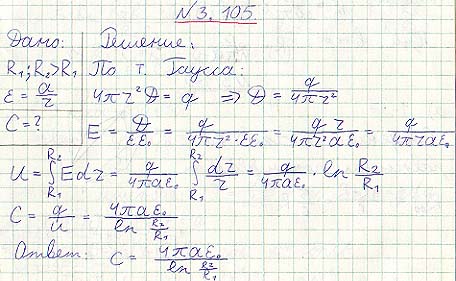 №3.105.
Дано: Решение:
R₁; R₂>R₁ По т. Гаусса:
ε = a/r 4πr²D = q ⇒ D = q/4πr²
C = ? E = D/εε₀ = q/4πr²·εε₀ = qr/4πr²aε₀ = q/4πraε₀
U = ∫_{R₁}^{R₂} Edr = q/4πaε₀ ∫_{R₁}^{R₂} dr/r = q/4πaε₀ · ln R₂/R₁
C = q/U = 4πaε₀/ln R₂/R₁
Ответ: C = 4πaε₀/ln R₂/R₁